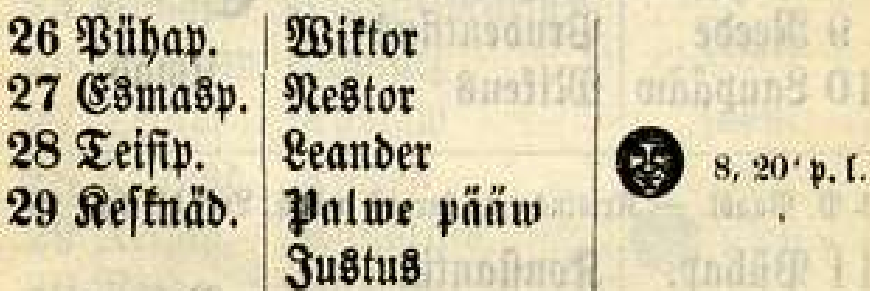 26 Pühap. Wiktor
27 Esmasp. Nestor
28 Teisip. Leander 8, 20' p. l.
29 Kesknäd. Palwe pääw
Justus